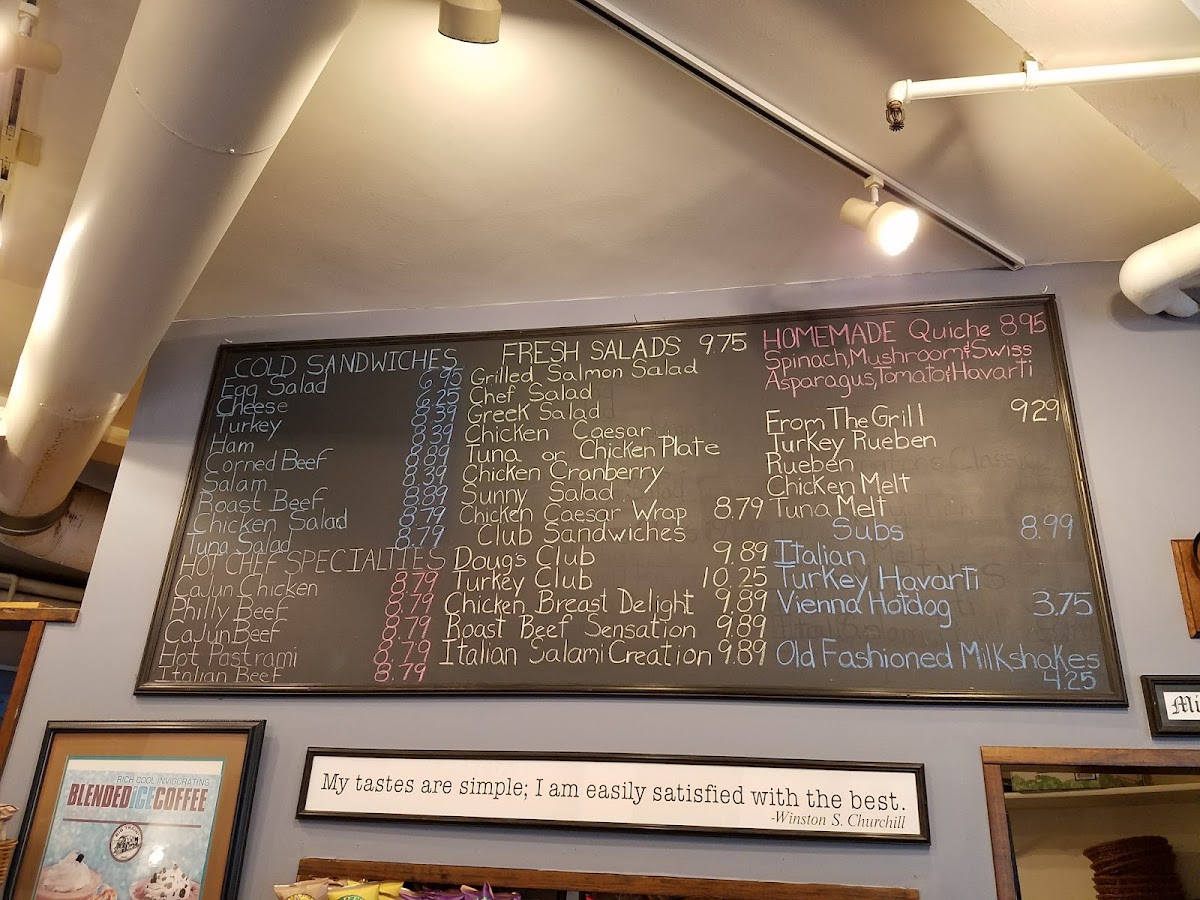 COLD SANDWICHES
Egg Salad 6.95
Cheese 6.25
Turkey 8.39
Ham 8.39
Corned Beef 8.89
Salami 8.39
Roast Beef 8.89
Chicken Salad 8.79
Tuna Salad 8.79
HOT CHEF SPECIALTIES
Cajun Chicken 8.79
Philly Beef 8.79
Cajun Beef 8.79
Hot Pastrami 8.79
Italian Beef 8.79
FRESH SALADS 9.75
Grilled Salmon Salad
Chef Salad
Greek Salad
Chicken Caesar
Tuna or Chicken Plate
Chicken Cranberry
Sunny Salad
Chicken Caesar Wrap 8.79
Club Sandwiches
Doug's Club 9.89
Turkey Club 10.25
Chicken Breast Delight 9.89
Roast Beef Sensation 9.89
Italian Salami Creation 9.89
HOMEMADE Quiche 8.95
Spinach, Mushroom & Swiss
Asparagus, Tomato & Havarti
From The Grill 9.29
Turkey Rueben
Rueben
Chicken Melt
Tuna Melt
Subs 8.99
Italian
Turkey Havarti
Vienna Hotdog 3.75
Old Fashioned Milkshakes
4.25
Mi
RICH COOL INVIGORATING
BLENDED iCE COFFEE
My tastes are simple; I am easily satisfied with the best.
-Winston S. Churchill